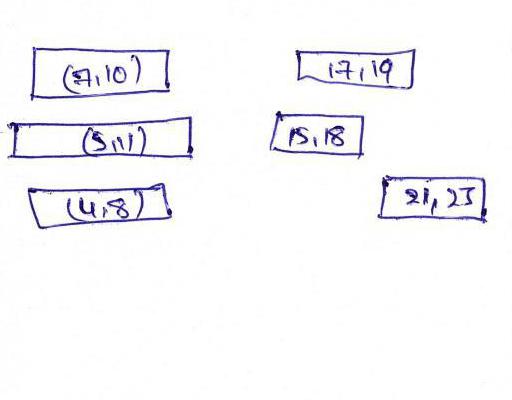 (7,10) 17,19
(5,11) 15,18
(4,8)
21,23